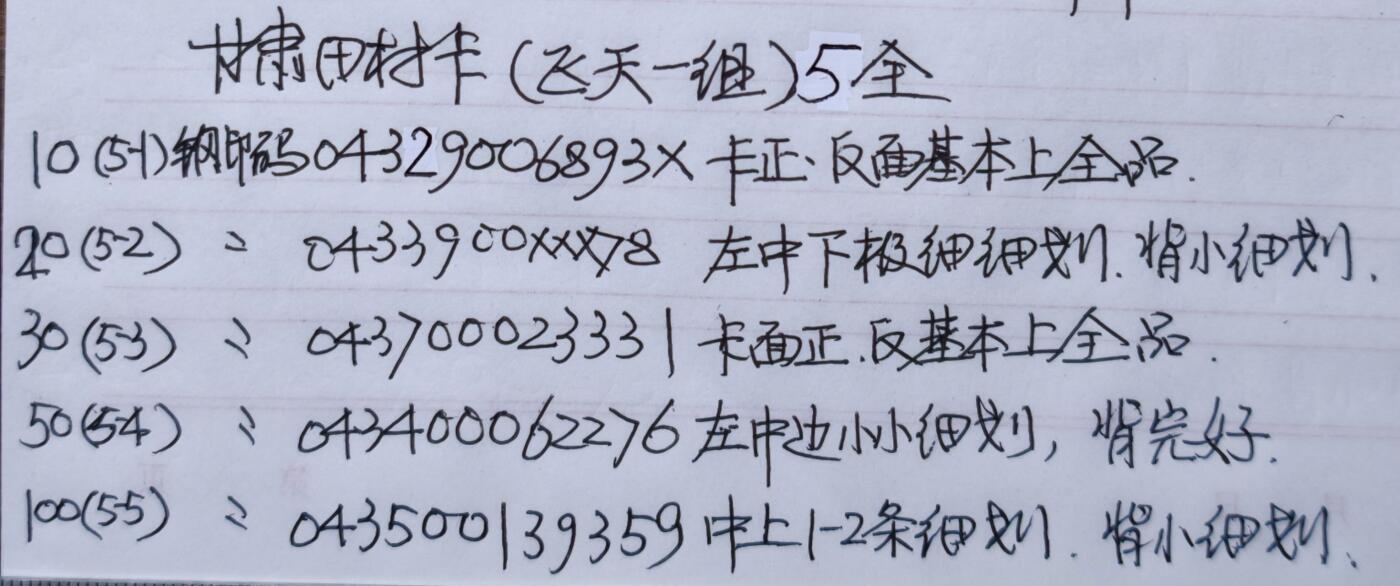 甘肃田村卡(飞天一组)5全
10(5-1)钢印码04329006893X 卡正、反面基本上全品.
20(5-2) 〃 0433900XXX78 左中下极细细划.背小细划.
30(5-3) 〃 043700023331 卡面正.反基本上全品.
50(5-4) 〃 043400062276 左中边小小细划,背完好.
100(5-5) 〃 043500139359 中上1-2条细划.背小细划.